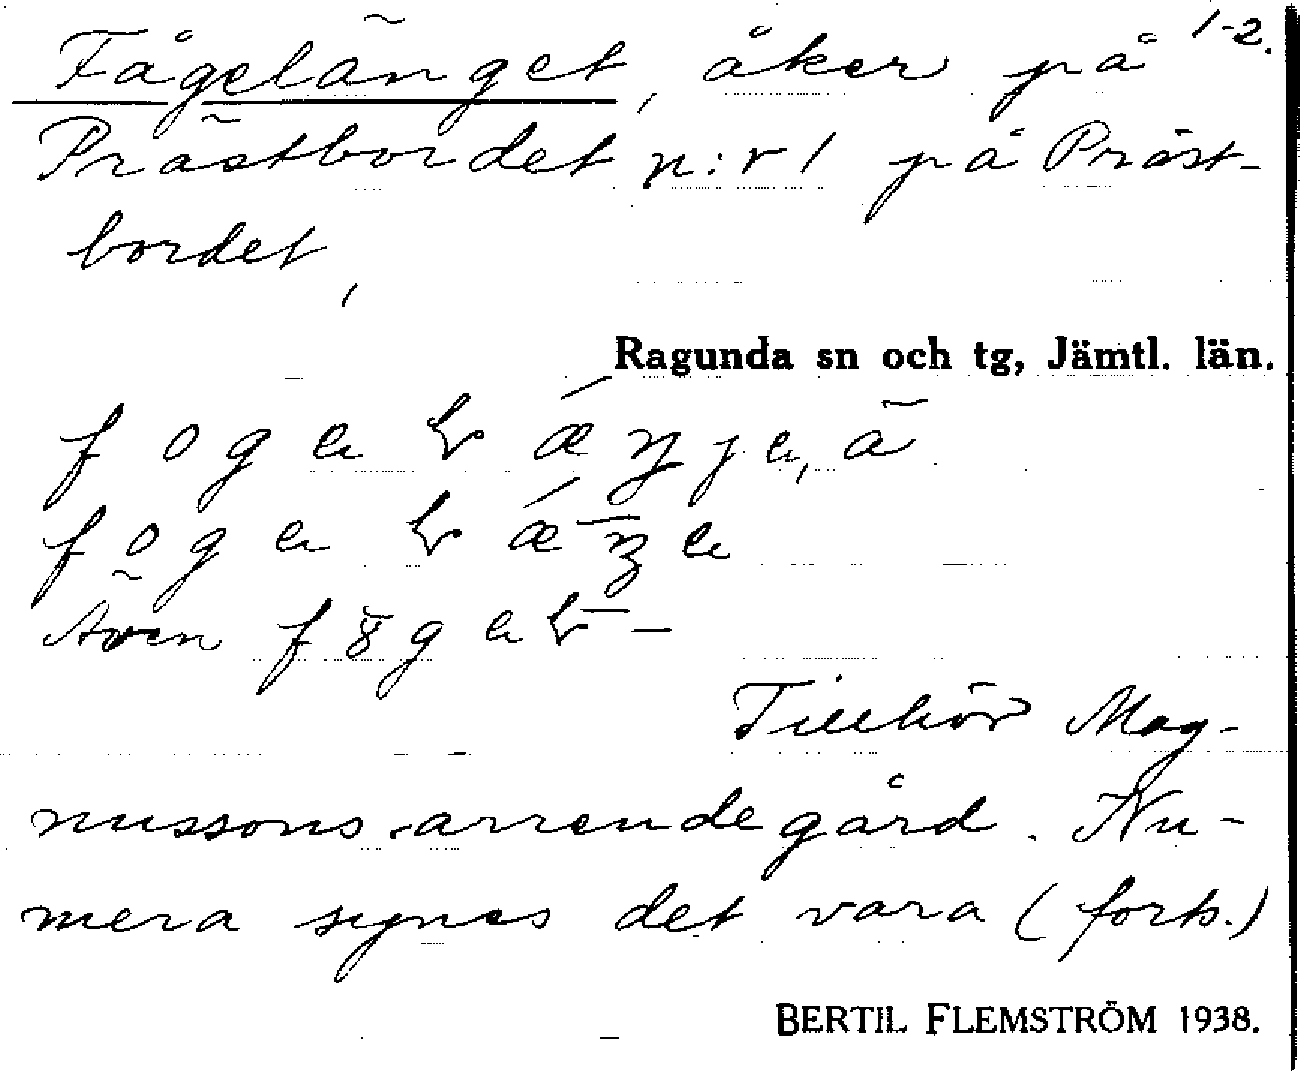 1-2.
Fågelänget, åker på
Prästbordet n:r 1 på Präst-
bordet,
Ragunda sn och tg, Jämtl. län.
Även
Tillhör Mag-
nussons arrendegård. Nu-
mera synes det vara (forts.)
BERTIL FLEMSTRÖM 1938.